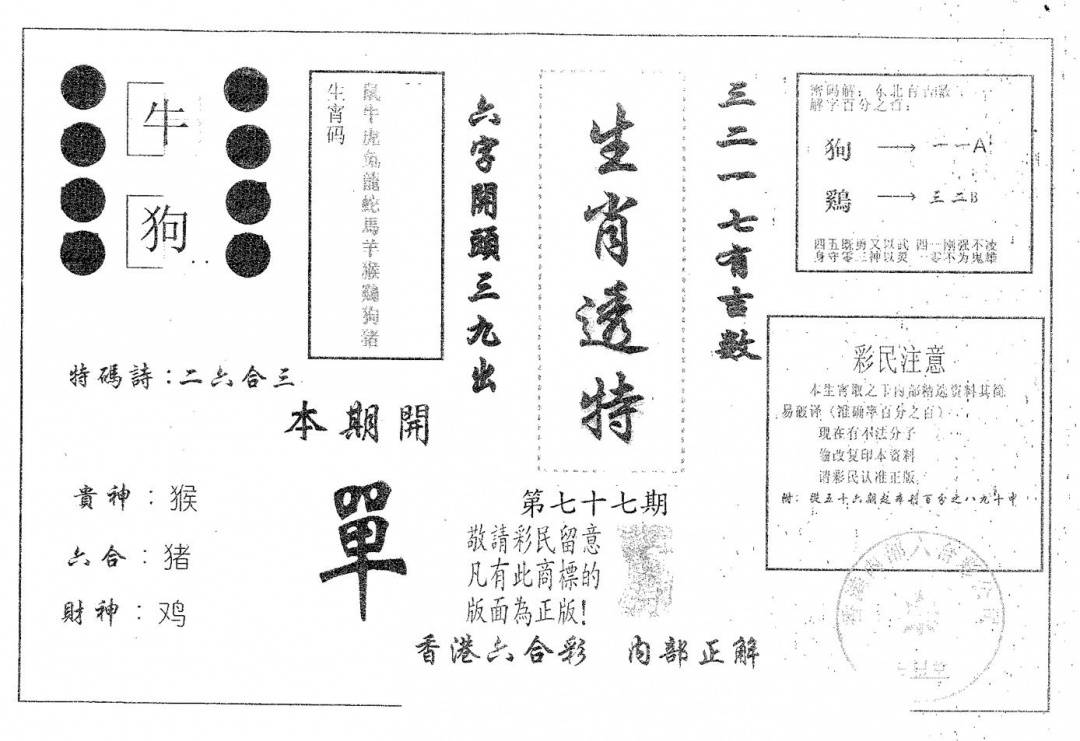 牛
狗
生宵码
鼠牛虎兔龍蛇馬羊猴鷄狗猪
六字開頭三九出
生肖透特
三二一七有吉數
密码解：东北有
解字百分之百：
狗 → 一一A
鷄 → 三二B
四五既勇又以武 四一刚强不凌
身守零三神以灵 一零不为鬼雄
彩民注意
本生宵取之于内部精选资料其简
易破译（准确率百分之百）
现在有不法分子
偷改复印本资料
请彩民认准正版
附：從五十六期起
特碼詩：二六合三
本期開
單
貴神：猴
六合：猪
財神：鸡
第七十七期
敬請彩民留意
凡有此商標的
版面為正版！
香港六合彩 内部正解